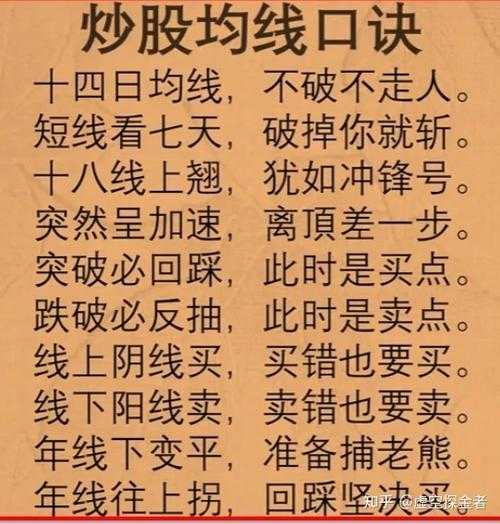 炒股均线口诀
十四日均线，不破不走人。
短线看七天，破掉你就斩。
十八线上翘，犹如冲锋号。
突然呈加速，离頂差一步。
突破必回踩，此时是买点。
跌破必反抽，此时是卖点。
线上阴线买，买错也要买。
线下阳线卖，卖错也要卖。
年线下变平，准备捕老熊。
年线往上拐，回踩坚决买。
知乎 @虚空探金者